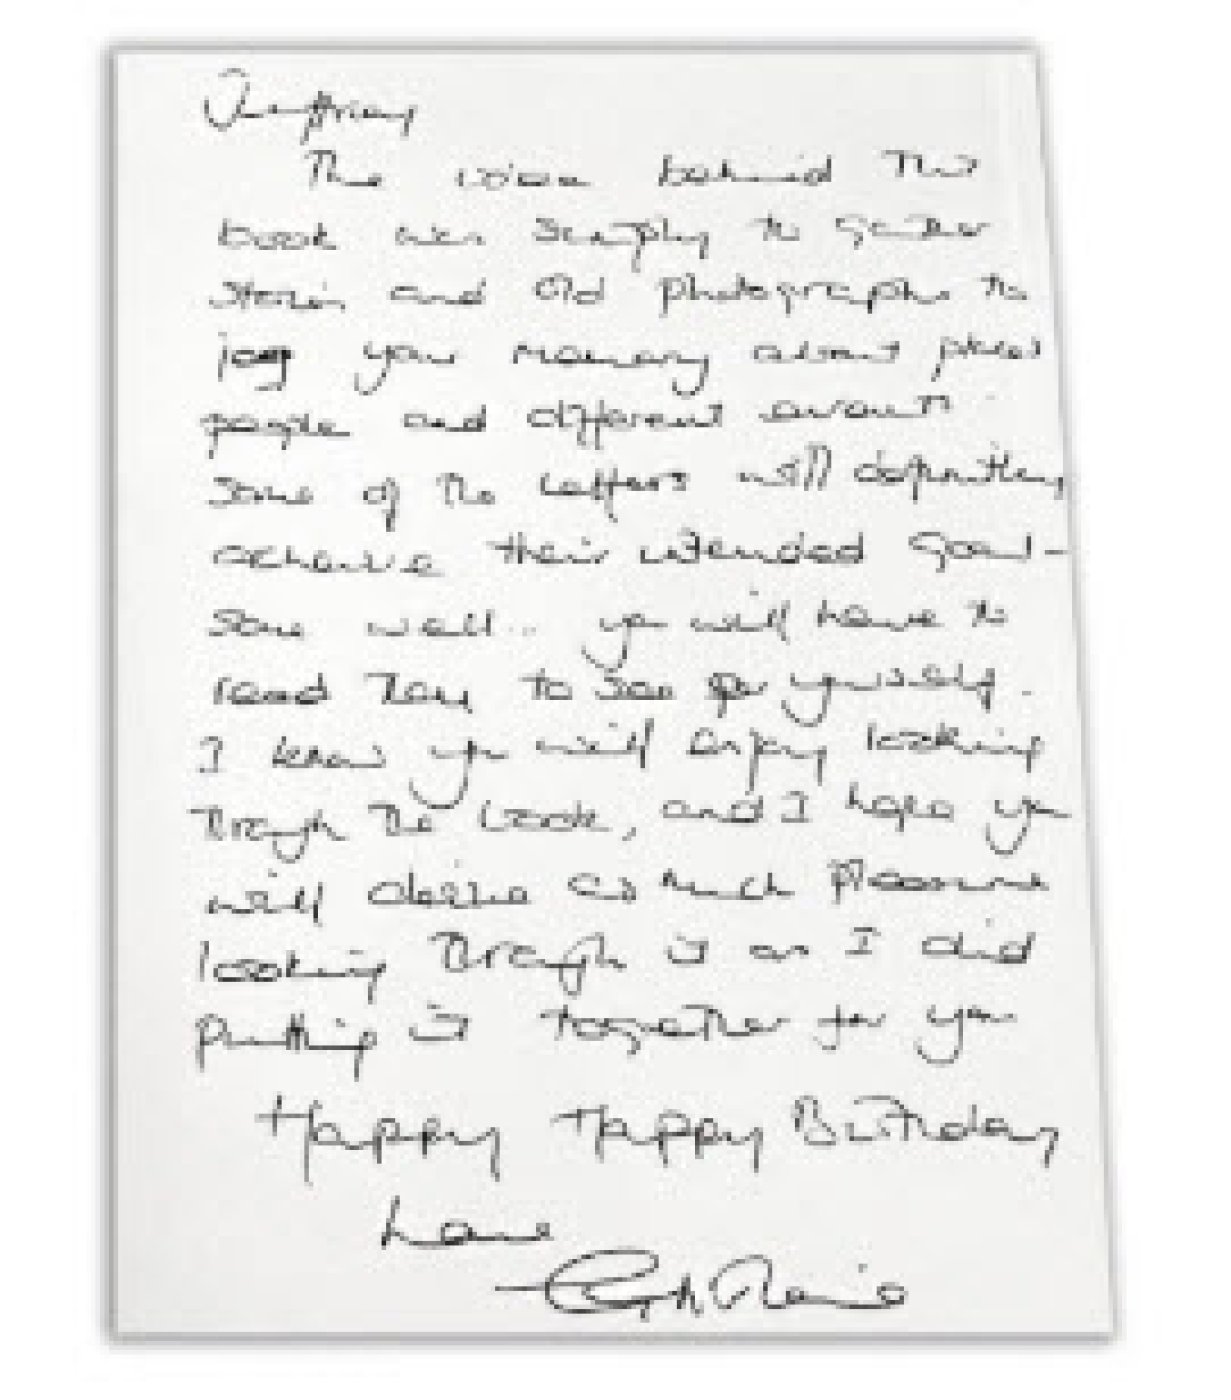 Jeffrey
The idea behind this
book was simply to gather
stories and old photographs to
jog your memory about places
people and different events.
Some of the letters will definitely
achieve their intended goal -
some well... you will have to
read them to see for yourself.
I know you will enjoy looking
through the book, and I hope you
will derive as much pleasure
looking through it as I did
putting it together for you
Happy Happy Birthday
Love